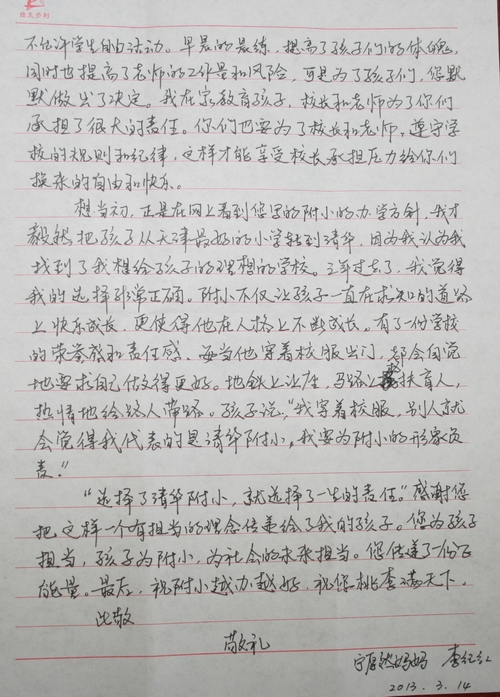 不允许学生自由活动。早晨的晨练，提高了孩子们的体魄，
同时也提高了老师的工作量和风险，可是为了孩子们，您默
默做出了决定。我在家教育孩子，校长和老师为了你们
承担了很大的责任。你们也要为了校长和老师，遵守学
校的规则和纪律，这样才能享受校长承担压力给你们
换来的自由和快乐。
想当初，正是在网上看到您写的附小的办学方针，我才
毅然把孩子从天津最好的小学转到清华，因为我认为我
找到了我想给孩子的理想的学校。三年过去了，我觉得
我的选择非常正确。附小不仅让孩子一直在求知的道路
上快乐成长，更使得他在人格上不断成长，有了一份学校
的荣誉感和责任感，每当他穿着校服出门，都会自觉
地要求自己做得更好。地铁上让座，马路上扶盲人，
热情地给路人带路。孩子说，“我穿着校服，别人就
会觉得我代表的是清华附小，我要为附小的形象负
责。”
“选择了清华附小，就选择了一生的责任。”感谢您
把这样一个有担当的理念传递给了我的孩子。您为孩子
担当，孩子为附小，为社会的未来担当。您传递了一份正
能量。最后，祝附小越办越好，祝您桃李满天下。
此致
敬礼
妈妈 李红
2013.3.14